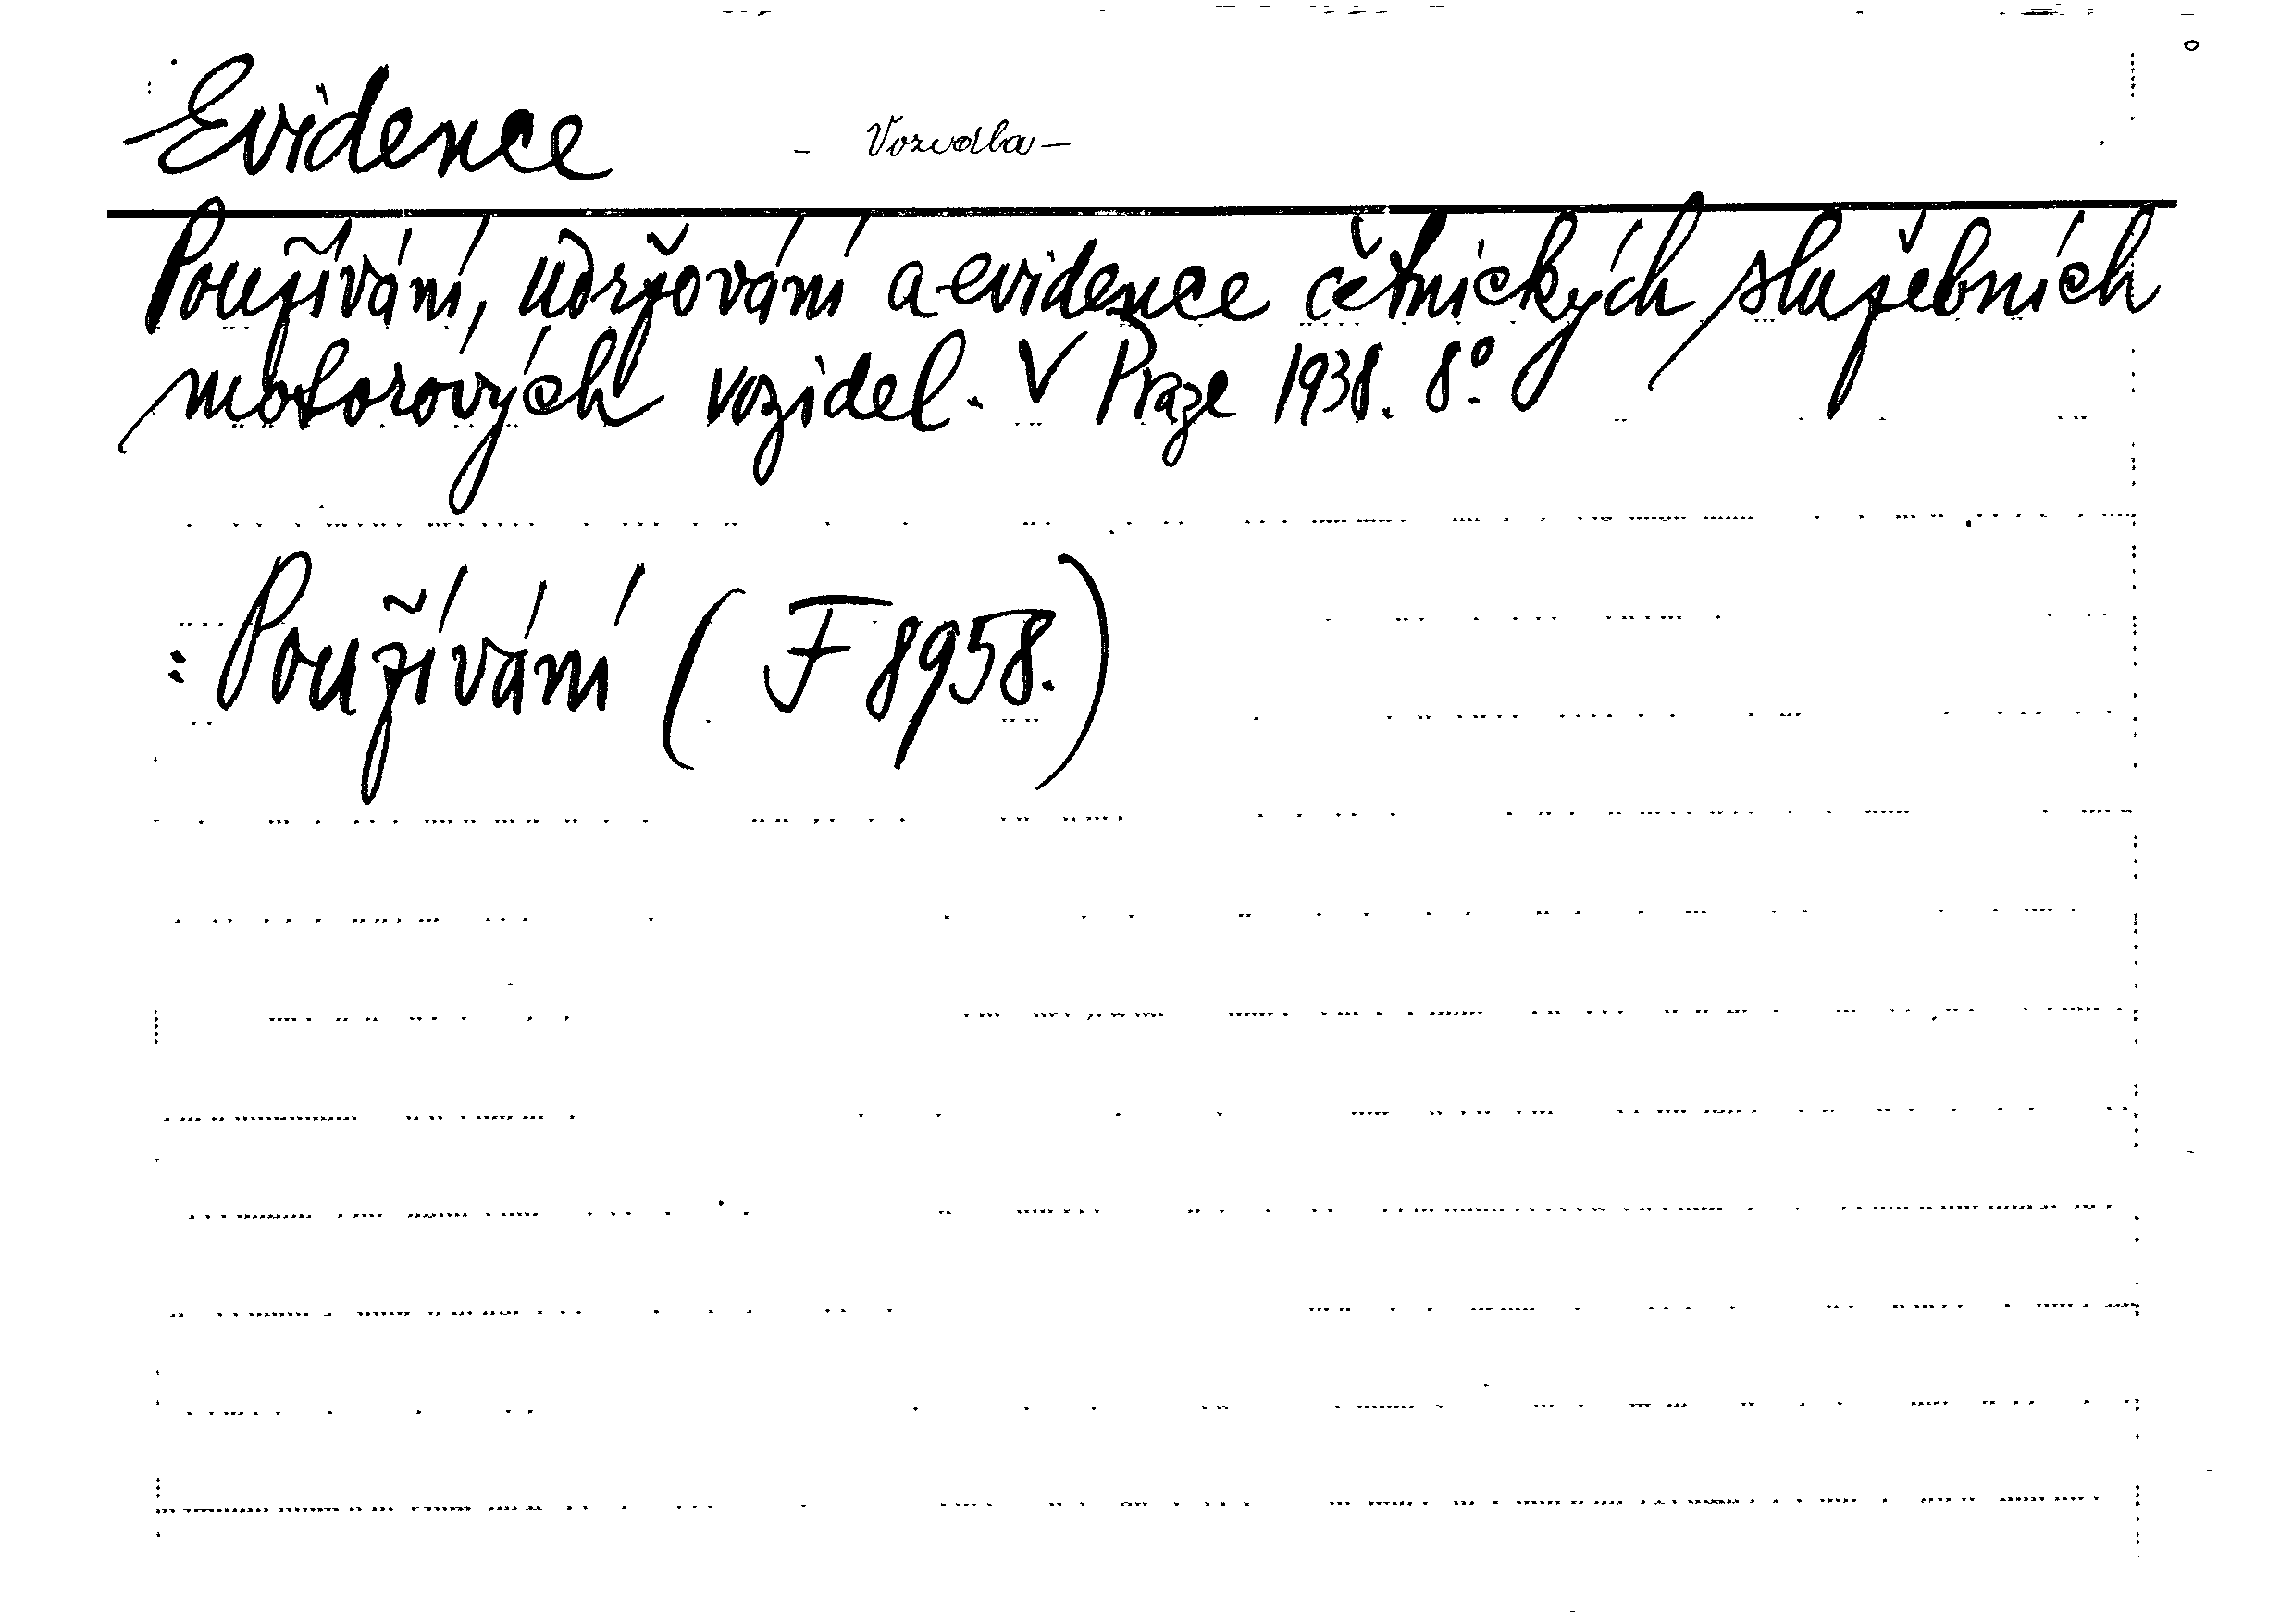 Evidence - Vozidla -
Používání, udržování a evidence četnických služebních
motorových vozidel. V Praze 1938. 8°.
: Používání (F 8958.)